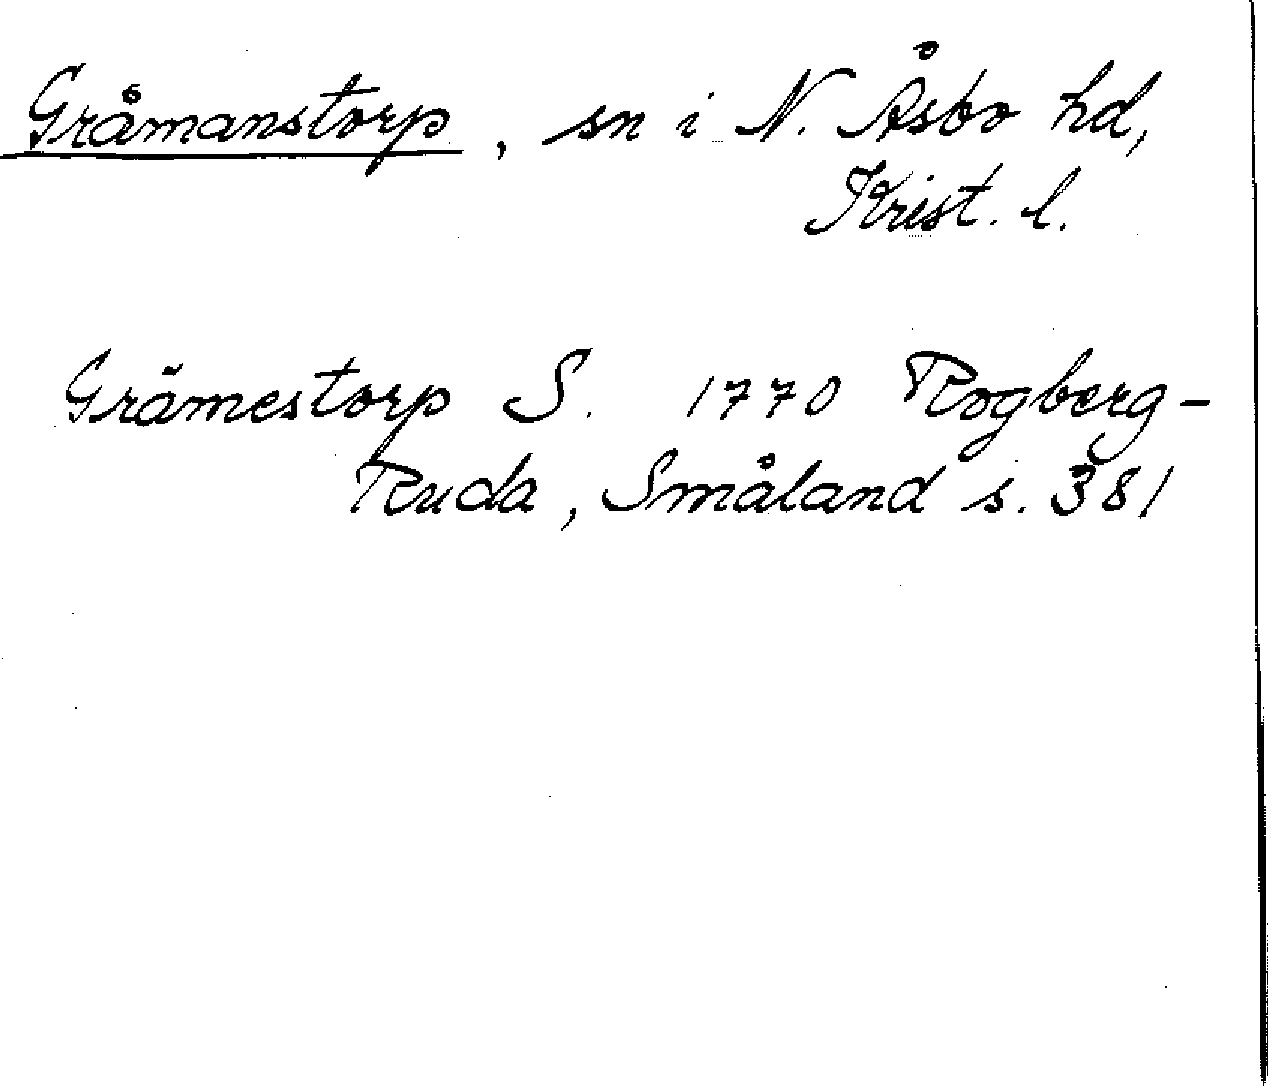 Gråmanstorp, sn i N. Åsbo hd,
Krist. l.
Grämestorp S. 1770 Rogberg-
Ruda, Småland s. 381